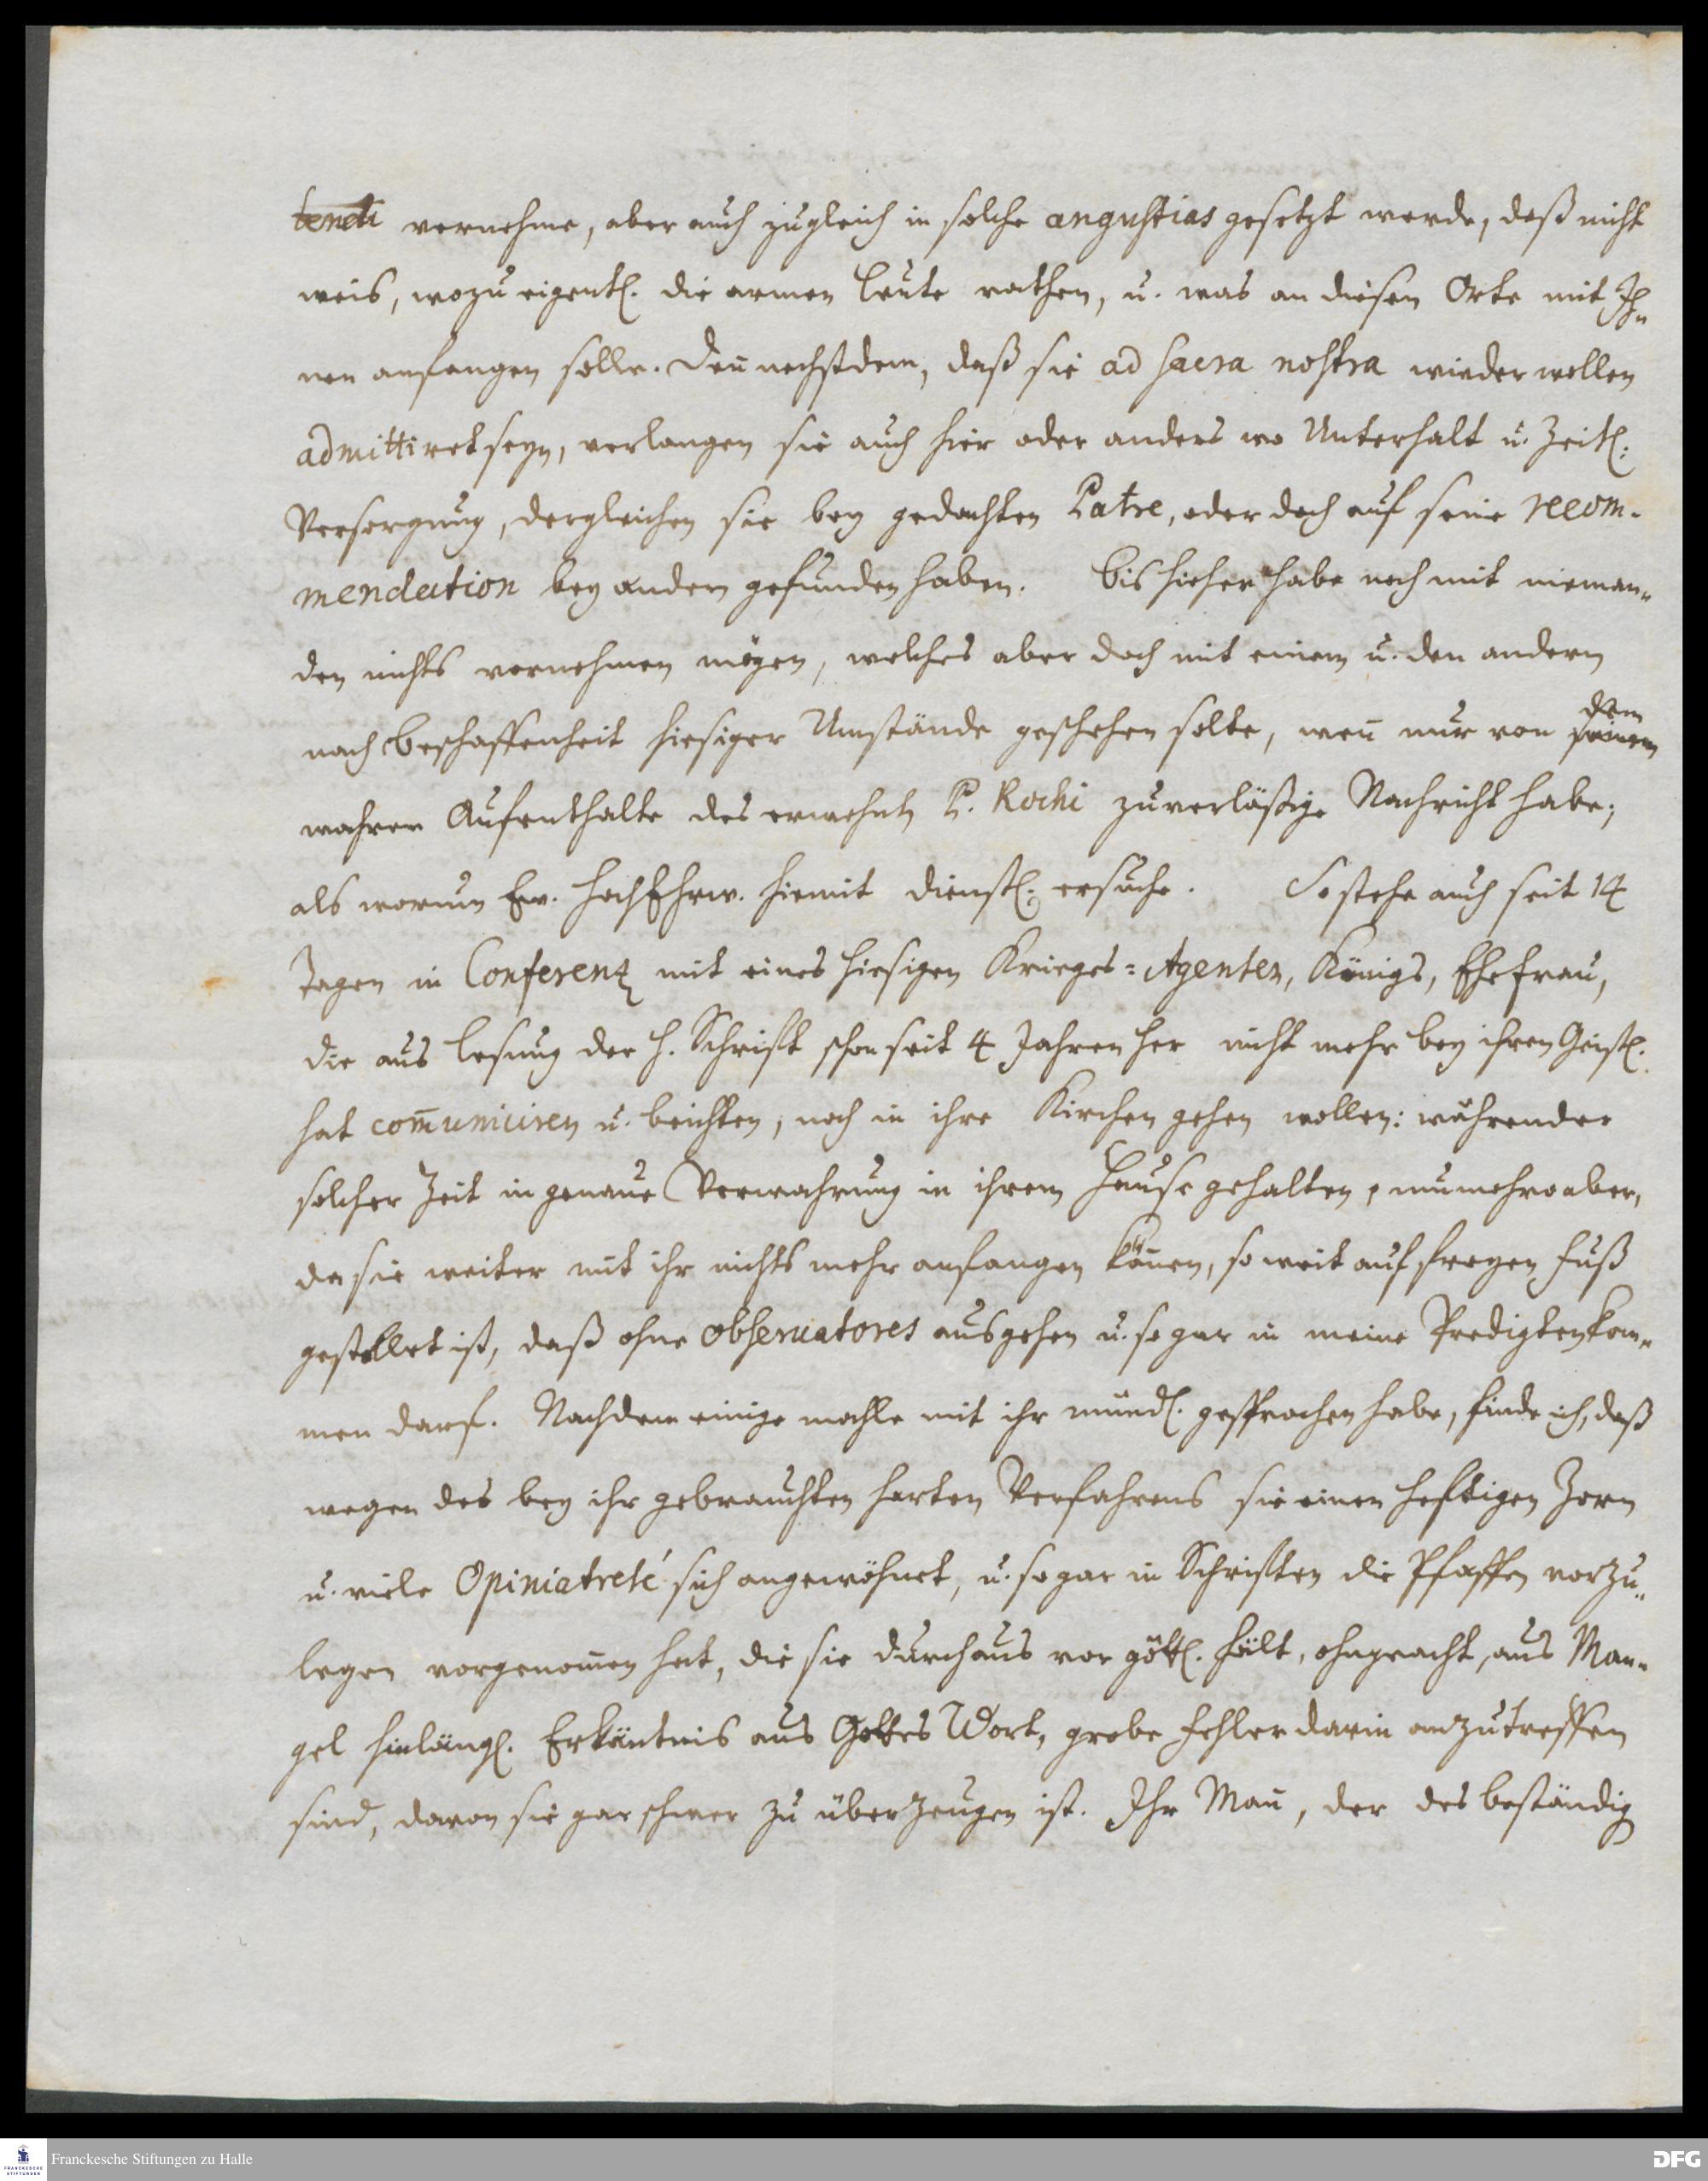 tendi vernehme, aber auch zugleich in solche angustias gesetzt werde, daß nicht
weis, wozu eigentl. die armen Leute rathen, u. was an diesen Orte mit Ih-
nen anfangen solle. Deñ nechstdem, daß sie ad sacra nostra wieder wollen
admittiret seyn, verlangen sie auch hier oder anders wo Unterhalt u. zeitl.
Versorgung, dergleichen sie bey gedachten Patre, oder doch auf seine recom-
mendation bey andern gefunden haben. Bis hieher habe noch mit nieman-
den nichts vornehmen mögen, welches aber doch mit einem u. den andern
nach Beschaffenheit hiesiger Umstände geschehen solte, weñ nur von seinem dem
wahren Aufenthalte des erwehnten P. Rochi zuverläßige Nachricht habe;
als warum Ew. HochEhrw. hiemit dienstl. ersuche. So stehe auch seit 14
Tagen in Conferenz mit eines hiesigen Krieges-Agenten, Königs, Ehefrau,
die aus Lesung der H. Schrift schon seit 4 Jahren her nicht mehr bey ihren Geistl.
hat com̃uniciren u. beichten, noch in ihre Kirchen gehen wollen: währender
solcher Zeit in genaue Verwahrung in ihrem Hause gehalten, nunmehro aber,
da sie weiter mit ihr nichts mehr anfangen köñen, so weit auf freyen Fuß
gestellet ist, daß ohne observatores ausgehen u. so gar in meine Predigten kom-
men darf. Nachdem einige mahle mit ihr mündl. gesprochen habe, finde ich, daß
wegen des bey ihr gebrauchten harten Verfahrens sie einen hefftigen Zorn
u. viele Opiniatreté sich angewöhnet, u. so gar in Schriften die Pfaffen vorzu-
legen vorgenom̃en hat, die sie durchaus vor göttl. hält, ohngeacht, aus Man-
gel hinlängl. Erkäntnis aus Gottes Wort, grobe Fehler darin anzutreffen
sind, davon sie gar schwer zu überzeugen ist. Ihr Mañ, der des beständig
Franckesche Stiftungen zu Halle
FRANCKESCHE STIFTUNGEN
DFG